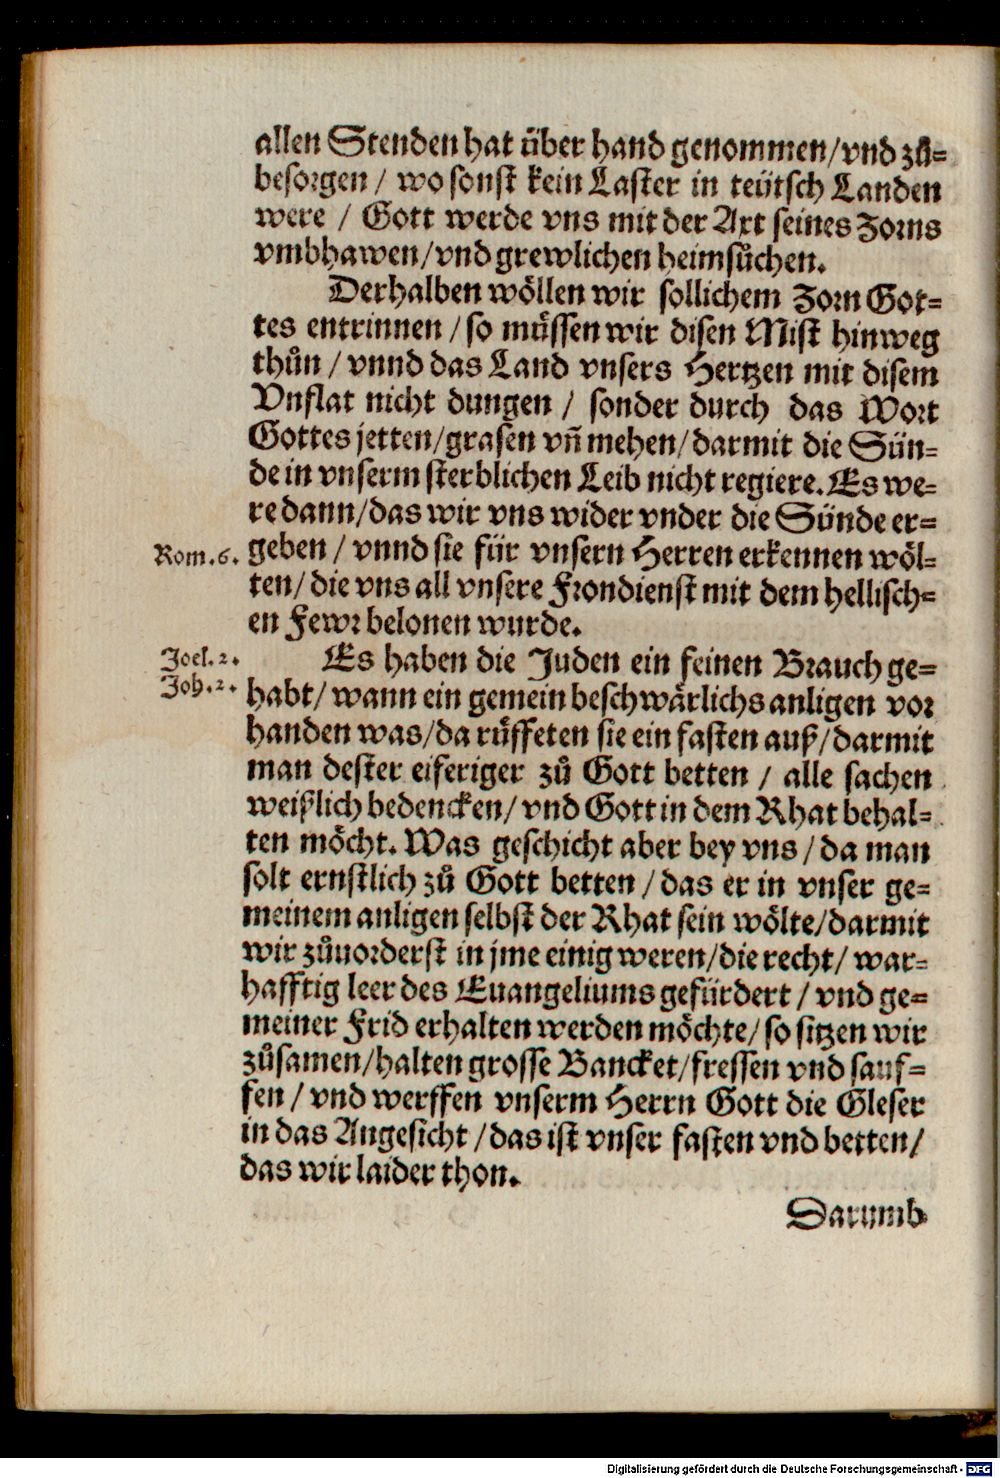 allen Stenden hat über hand genommen/vnd zů-
besorgen / wo sonst kein Laster in teütsch Landen
were / Gott werde vns mit der Axt seines Zorns
vmbhawen/vnd grewlichen heimsůchen.
Derhalben wöllen wir sollichem Zorn Got-
tes entrinnen / so müssen wir disen Mist hinweg
thůn / vnnd das Land vnsers Hertzen mit disem
Vnflat nicht dungen / sonder durch das Wort
Gottes jetten/grasen vñ mehen/darmit die Sün-
de in vnserm sterblichen Leib nicht regiere. Es we-
re dann/das wir vns wider vnder die Sünde er-
Rom. 6. geben / vnnd sie für vnsern Herren erkennen wöl-
ten/ die vns all vnsere Frondienst mit dem hellisch-
en Fewr belonen wurde.
Joel. 2. Es haben die Juden ein feinen Brauch ge-
Joh. 2. habt/ wann ein gemein beschwärlichs anligen vor
handen was/da rüffeten sie ein fasten auß/darmit
man dester eiferiger zů Gott betten / alle sachen
weißlich bedencken/ vnd Gott in dem Rhat behal-
ten möcht. Was geschicht aber bey vns / da man
solt ernstlich zů Gott betten / das er in vnser ge-
meinem anligen selbst der Rhat sein wölte/darmit
wir zůuorderst in jme einig weren/die recht/ war-
hafftig leer des Euangeliums gefürdert / vnd ge-
meiner Frid erhalten werden möchte/ so sitzen wir
zůsamen/halten grosse Bancket/fressen vnd sauf-
fen / vnd werffen vnserm Herrn Gott die Gleser
in das Angesicht / das ist vnser fasten vnd betten/
das wir laider thon.
Darumb
Digitalisierung gefördert durch die Deutsche Forschungsgemeinschaft - DFG